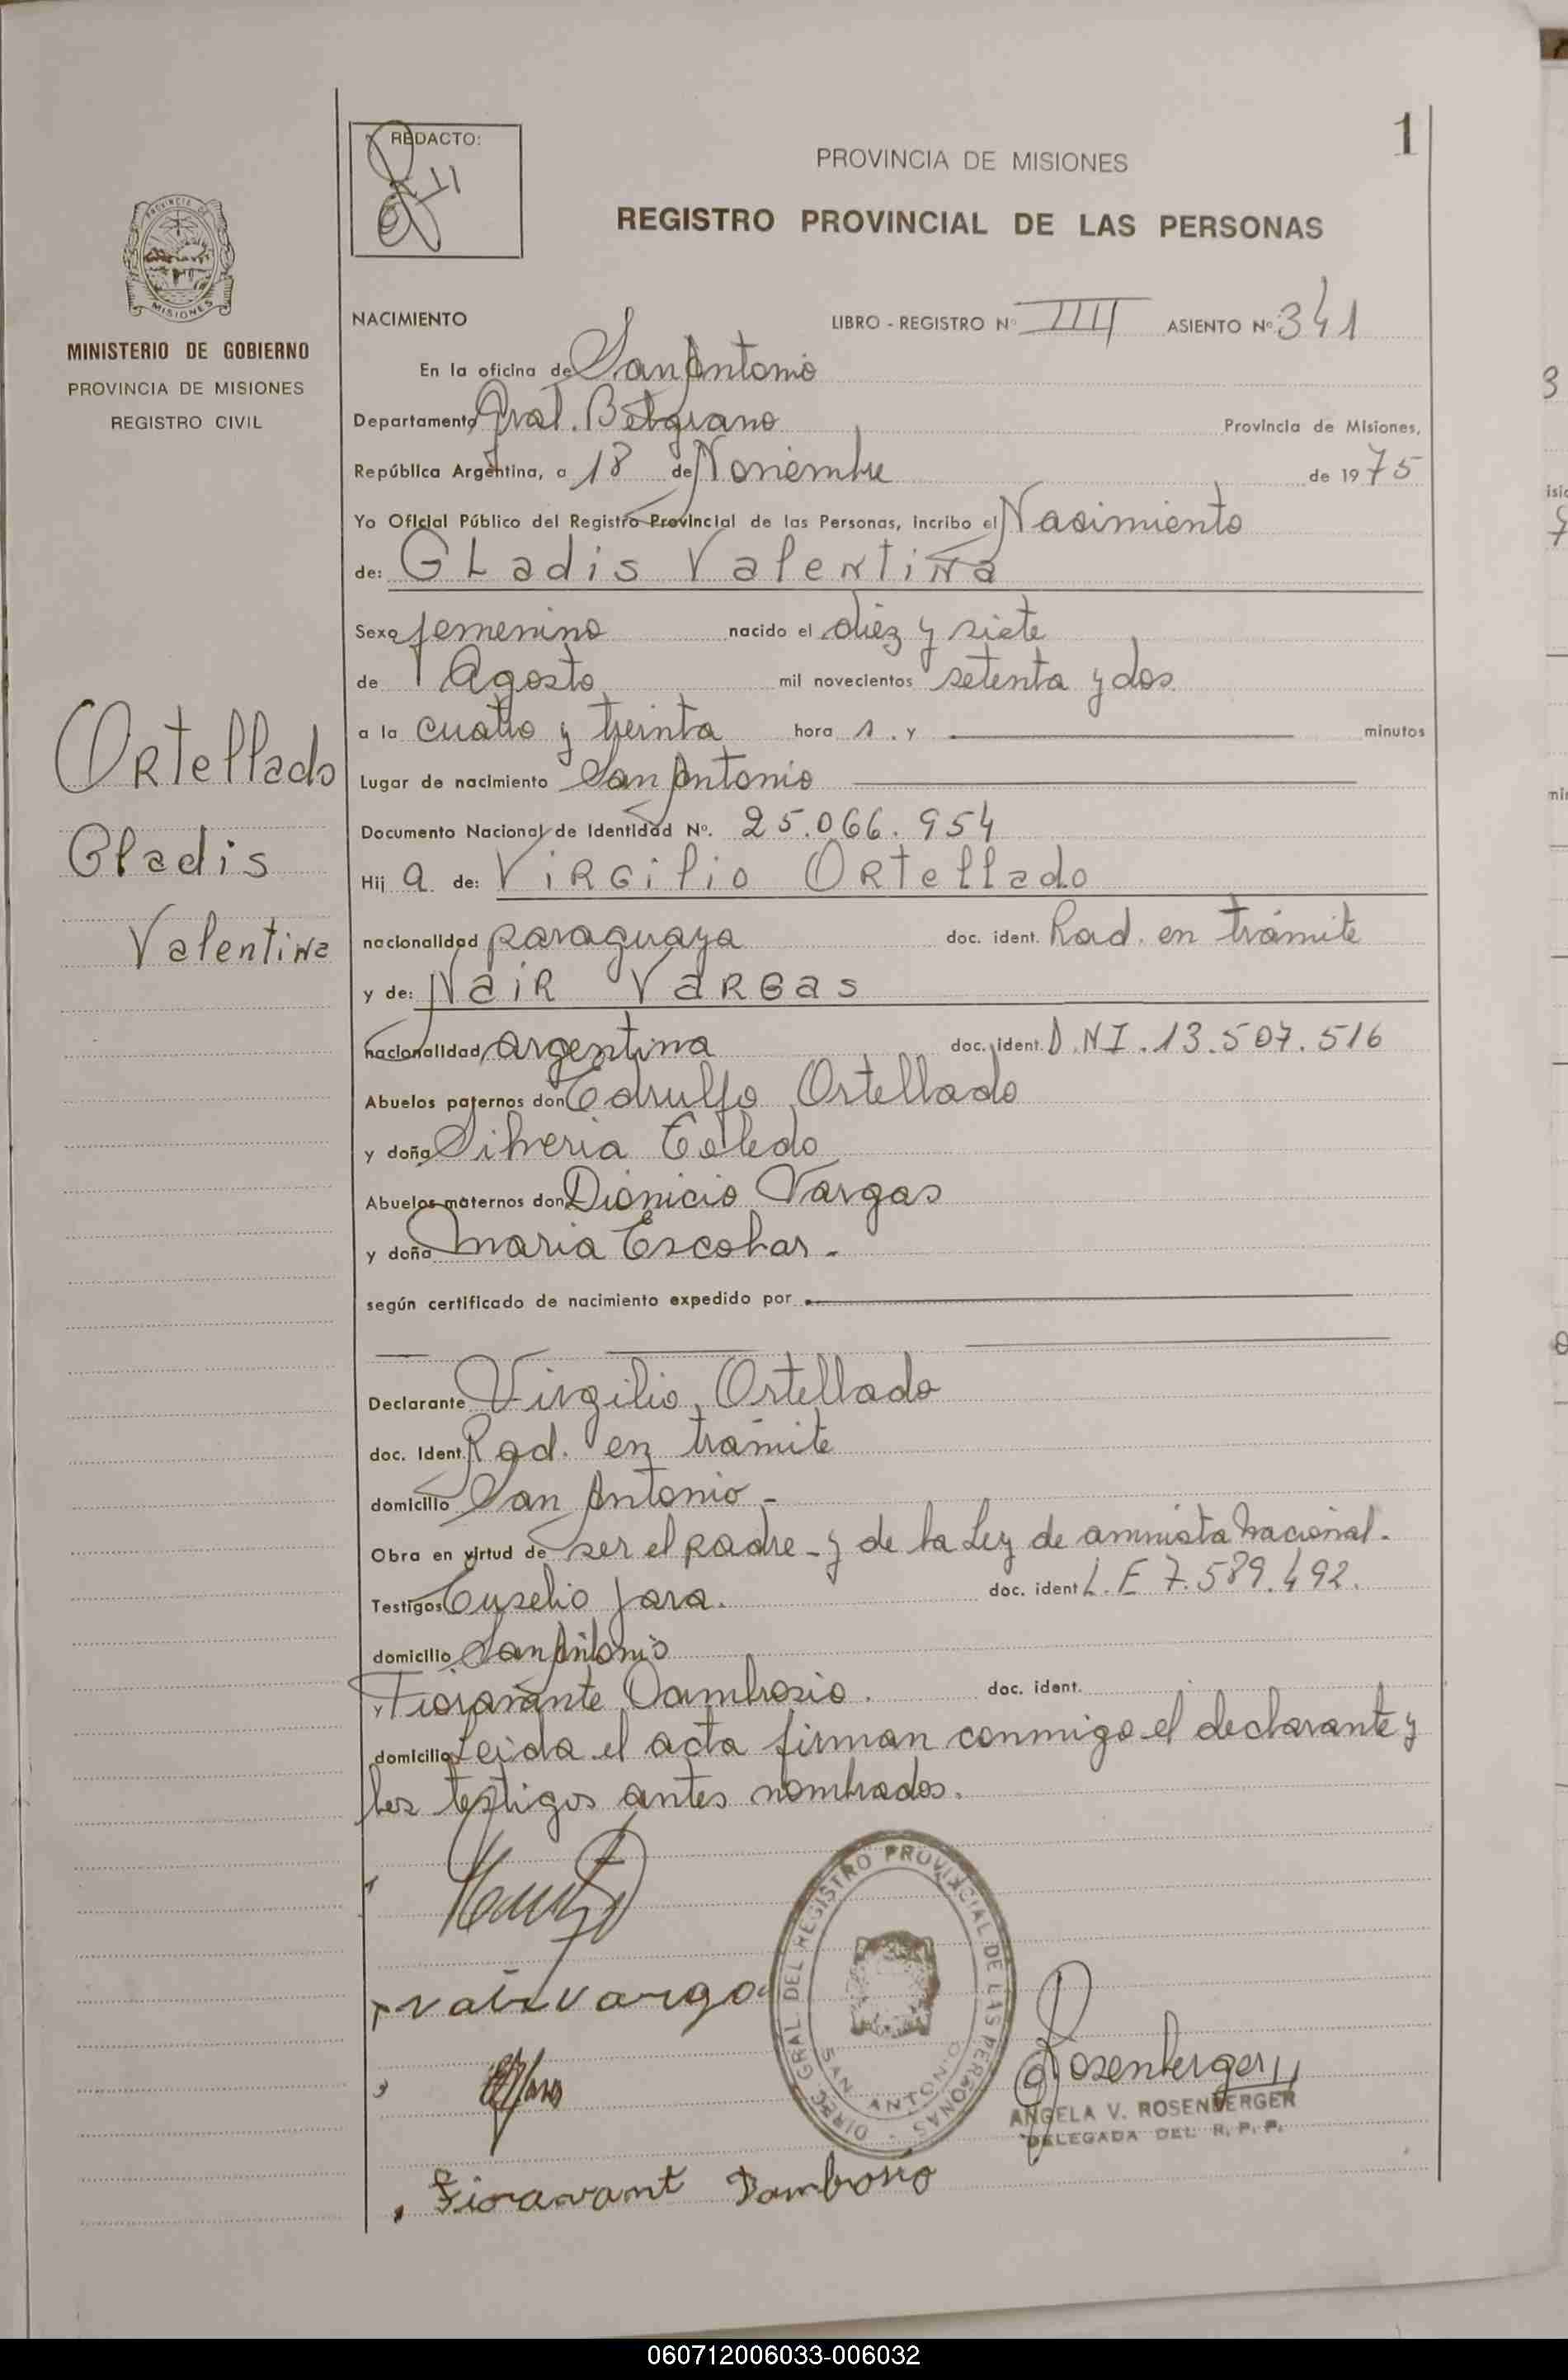 1
REDACTO:
PROVINCIA DE MISIONES
REGISTRO PROVINCIAL DE LAS PERSONAS
PROVINCIA DE
MISIONES
MINISTERIO DE GOBIERNO
PROVINCIA DE MISIONES
REGISTRO CIVIL
Ortellado
Gladis
Valentina
NACIMIENTO LIBRO - REGISTRO Nº IIII ASIENTO Nº 341
En la oficina de San Antonio
Departamento Gral. Belgrano Provincia de Misiones,
República Argentina, a 18 de Noviembre de 1975
Yo Oficial Público del Registro Provincial de las Personas, incribo el Nacimiento
de: GLadis Valentina
Sexo femenino nacido el diez y siete
de Agosto mil novecientos setenta y dos
a la cuatro y treinta hora s. y minutos
Lugar de nacimiento San Antonio
Documento Nacional de Identidad Nº. 25.066.954
Hij a de: Virgilio Ortellado
nacionalidad paraguaya doc. ident. Rad. en trámite
y de: Nair Vargas
nacionalidad argentina doc. ident. D.NI.13.507.516
Abuelos paternos don Edrulfo Ortellado
y doña Silveria Toledo
Abuelos maternos don Dionicio Vargas
y doña Maria Escobar.
según certificado de nacimiento expedido por
Declarante Virgilio Ortellado
doc. Ident. Rad. en trámite
domicilio San Antonio -
Obra en virtud de ser el padre - y de la Ley de amnista nacional.
Testigos Euselio Jara. doc. ident L.E 7.589.492.
domicilio San Antonio
y Fioravante Dambrosio. doc. ident.
domicilio Leida el acta firman conmigo el declarante y
los testigos antes nombrados.
nair vargas
DIREC. GRAL DEL REGISTRO PROVINCIAL DE LAS PERSONAS
SAN ANTONIO
Rosenberger
ANGELA V. ROSENBERGER
DELEGADA DEL R. P. P.
Fioravant Dambrosio
060712006033-006032